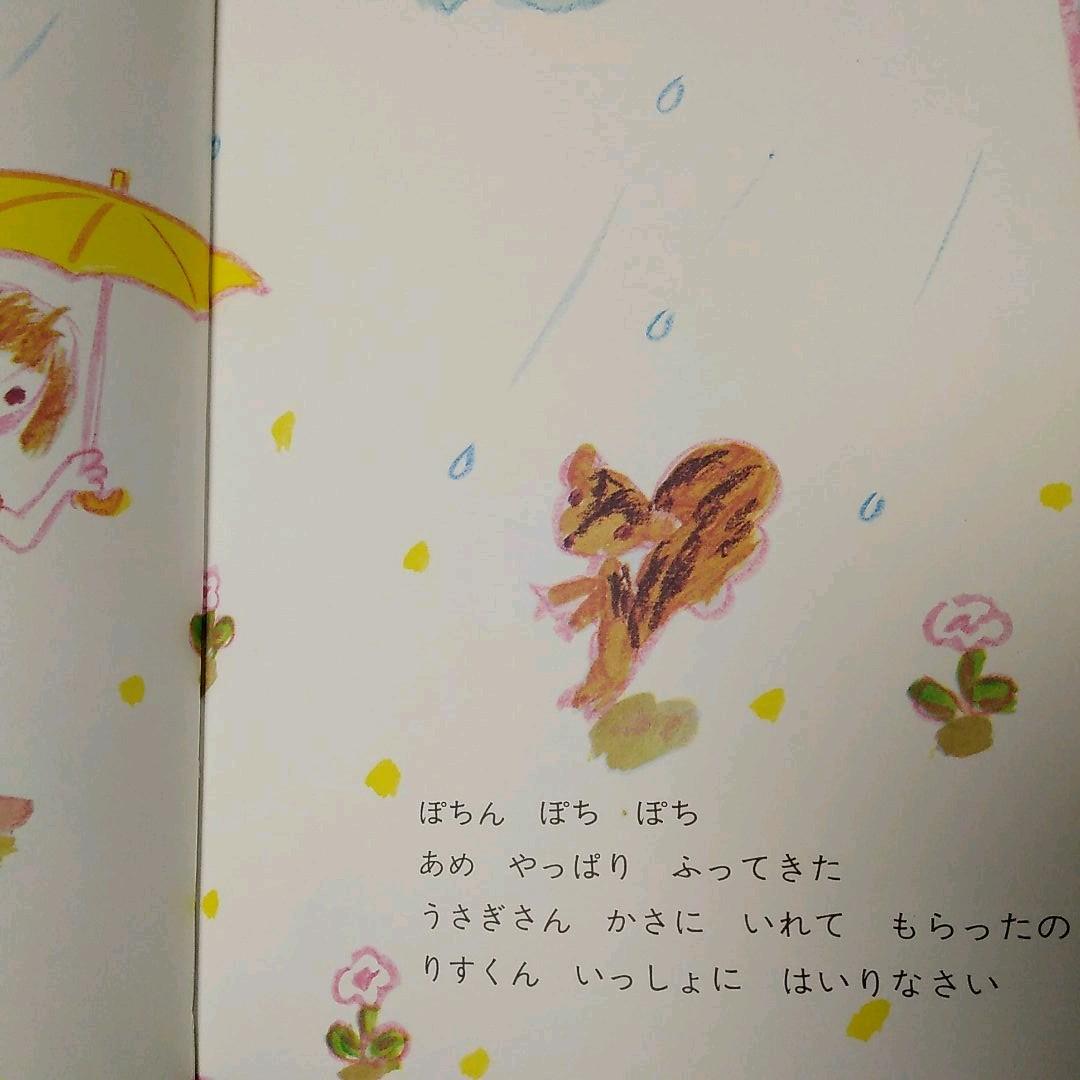 ぽちん　ぽち　ぽち
あめ　やっぱり　ふってきた
うさぎさん　かさに　いれて　もらったの
りすくん　いっしょに　はいりなさい